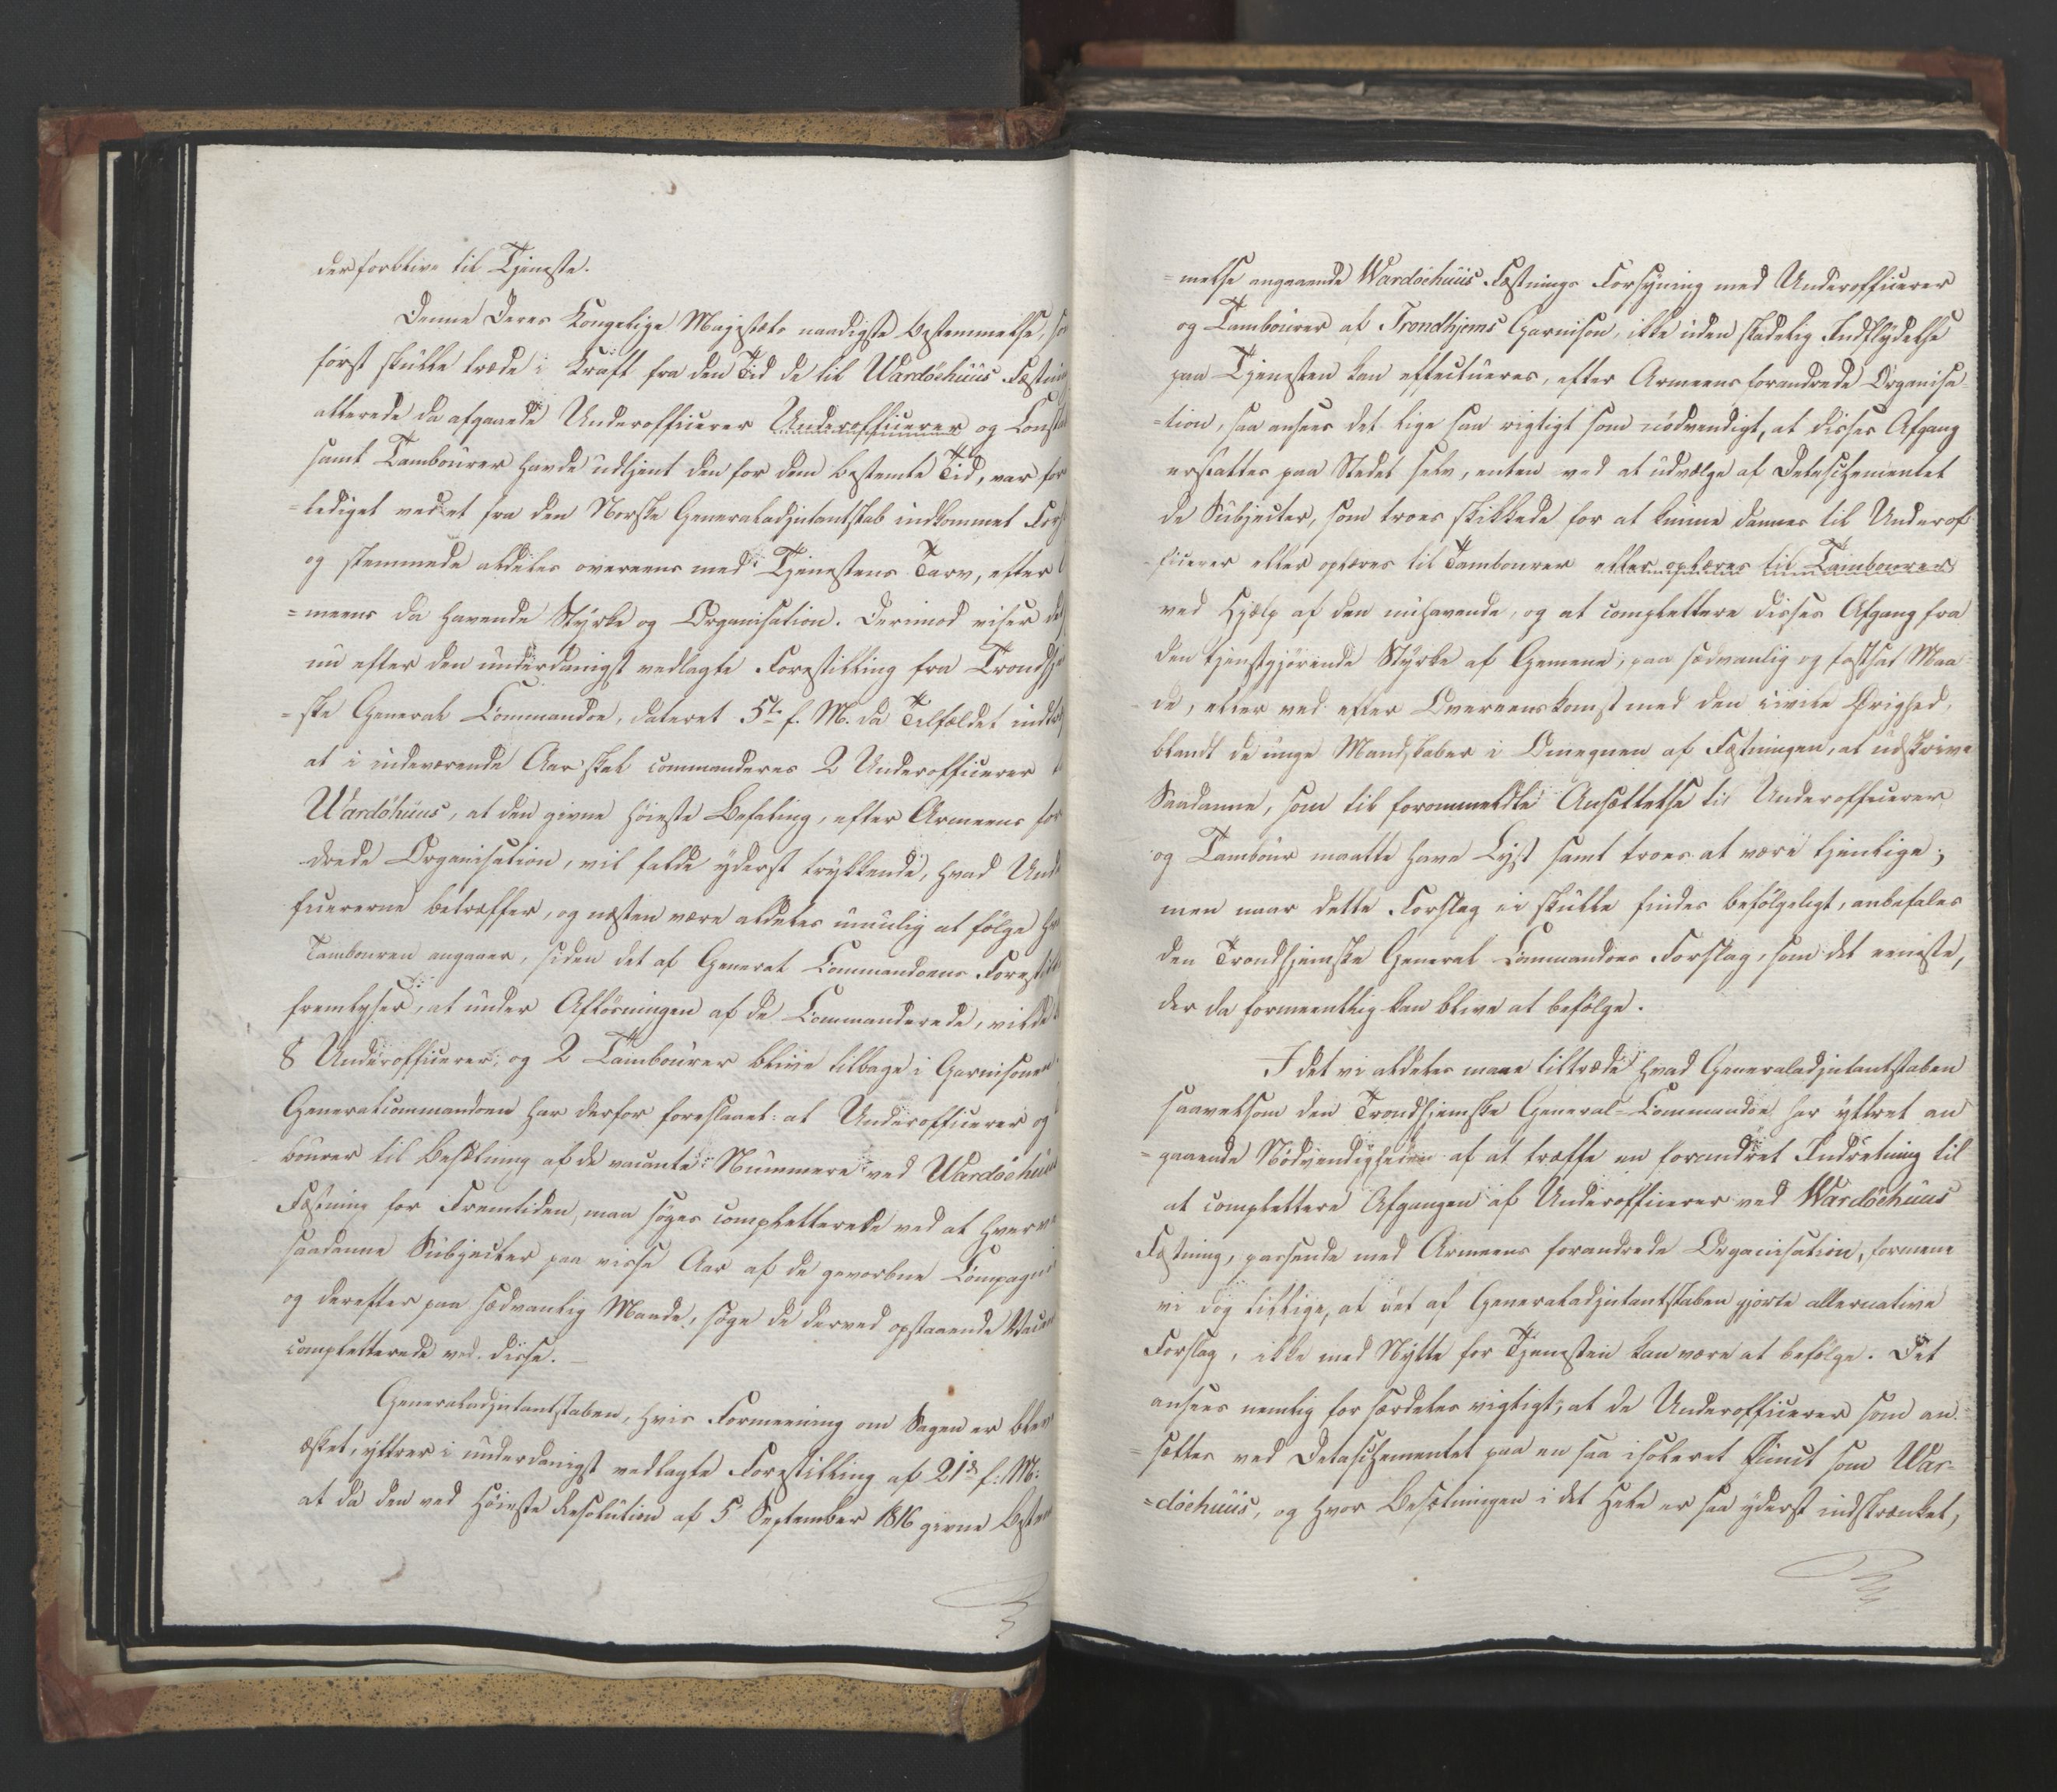 der forblive til Tjeneste.
Denne Deres Kongelige Majestæts naadigste Bestemmelse,
først skulle træde i Kraft fra den Tid de til Wardöehuus
allerede da afgaaede Underofficerer Underofficerer og
samt Tambourer havde udtjent den for dem bestemte Tid, var for
=lediget ved et fra den Norske Generaladjutantstab indkommet
og stemmede aldeles overeens med Tjenestens Tarv, efter
=meens da havende Styrke og Organisation. Derimod viser
nu efter den underdanigst vedlagte Forestilling fra
=ske General Commandoe, dateret 5te f. M. da Tilfældet
at i indeværende Aar skal commanderes 2 Underofficerer
Wardöhuus, at den givne höieste Befaling, efter Armeens for
drede Organisation, vil falde yderst trykkende, hvad
ficererne betræffer, og næsten være aldeles umulig at følge
Tambouren angaaer, siden det af General Commandoens
fremlyser, at under Aflösningen af de Commanderede, vilde
8 Underofficerer, og 2 Tambourer blive tilbage i Garnisonen
Generalcommandoen har derfor foreslaaet: at Underofficerer og
bourer til Besætning af de vacante Nummere ved Wardöehuus
Fæstning for Fremtiden, maa söges completterede ved at hverve
saadanne Subjecter paa visse Aar af de gevorbne
og derefter paa sædvanlig Maade, söge de derved opstaaende
completterede ved disse.
Generaladjutantstaben, hvis Formeening om Sagen er
æsket, yttrer i underdanigst vedlagte Forestilling af 21de f: M:
at da den ved Höieste Resolution af 5 September 1816 givne
=melse angaaende Wardöehuus Fæstnings Forsyning med Underofficerer
og Tambourer af Trondhjems Garnison, ikke uden skadelig Indflydelse
paa Tjenesten kan effectueres, efter Armeens forandrede Organisa=
=tion, saa ansees det lige saa rigtigt som nödvendigt, at disses Afgang
erstattes paa Stedet selv, enten ved at udvælge af Detaschementet
de Subjecter, som troes skikkede for at kunne dannes til Underof
ficerer eller oplæres til Tambourer eller oplæres til Tambourer
ved Hjælp af den nuhavende, og at complettere disses Afgang fra
den tjenstgjørende Styrke af Gemene, paa sædvanlig og fastsat Maa=
de, eller ved efter Overeenskomst med den civile Øvrighed,
blandt de unge Mandskaber i Omegnen af Fæstningen, at udskrive
Saadanne, som til forommeldte Ansættelse til Underofficerer
og Tambour maatte have Lyst samt troes at være tjenlige;
men naar dette Forslag ei skulle findes befölgeligt, anbefales
den Trondhjemske General Commandoes Forslag, som det eeneste,
der da formeentlig kan blive at befölge.
I det vi aldeles maae tiltræde hvad Generaladjutantstaben
saavelsom den Trondhjemske General=Commandoe har yttret an
=gaaende Nödvendigheden af at træffe en forandret Indretning til
at complettere Afgangen af Underofficerer ved Wardöehuus
Fæstning, passende med Armeens forandrede Organisation, formene
vi dog tillige, at det af Generaladjutantstaben gjorte alternative
Forslag, ikke med Nytte for Tjenesten kan være at befölge. Det
ansees nemlig for særdeles vigtigt, at de Underofficerer som an
=sættes ved Detaschementet paa en saa isoleret Punct som War=
=döehuus, og hvor Besætningen i det Hele er saa yderst indskrænket,